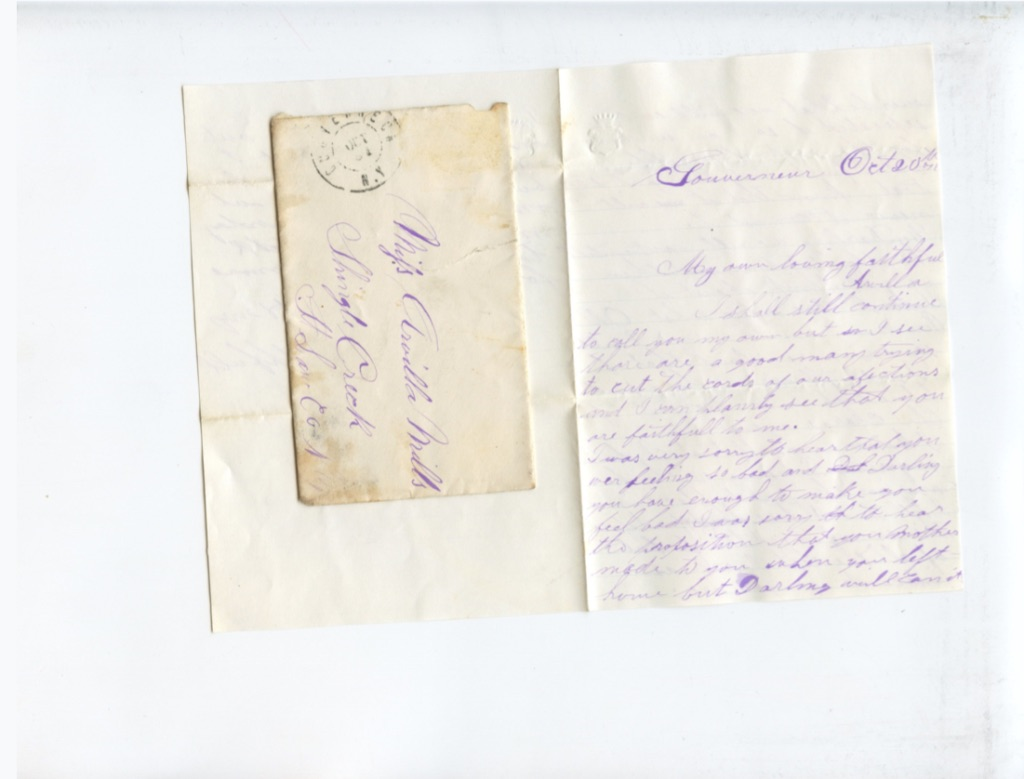 GOUVERNEUR
OCT
N.Y.
Miss Arvilla Mills
Shingle Creek
St Law Co N
Gouverneur Oct 20th
My own loving faithful
Arvilla
I shall still continue
to call you my own but as I see
thare are a good many trying
to cut the cords of our afections
and I can planly see that you
are faithfull to me.
I was very sorry to hear that you
wer feeling so bad and Darling
you have enough to make you
feel bad I was sorry to hear
the proposition that your Mother
made to you when your left
home but Darling